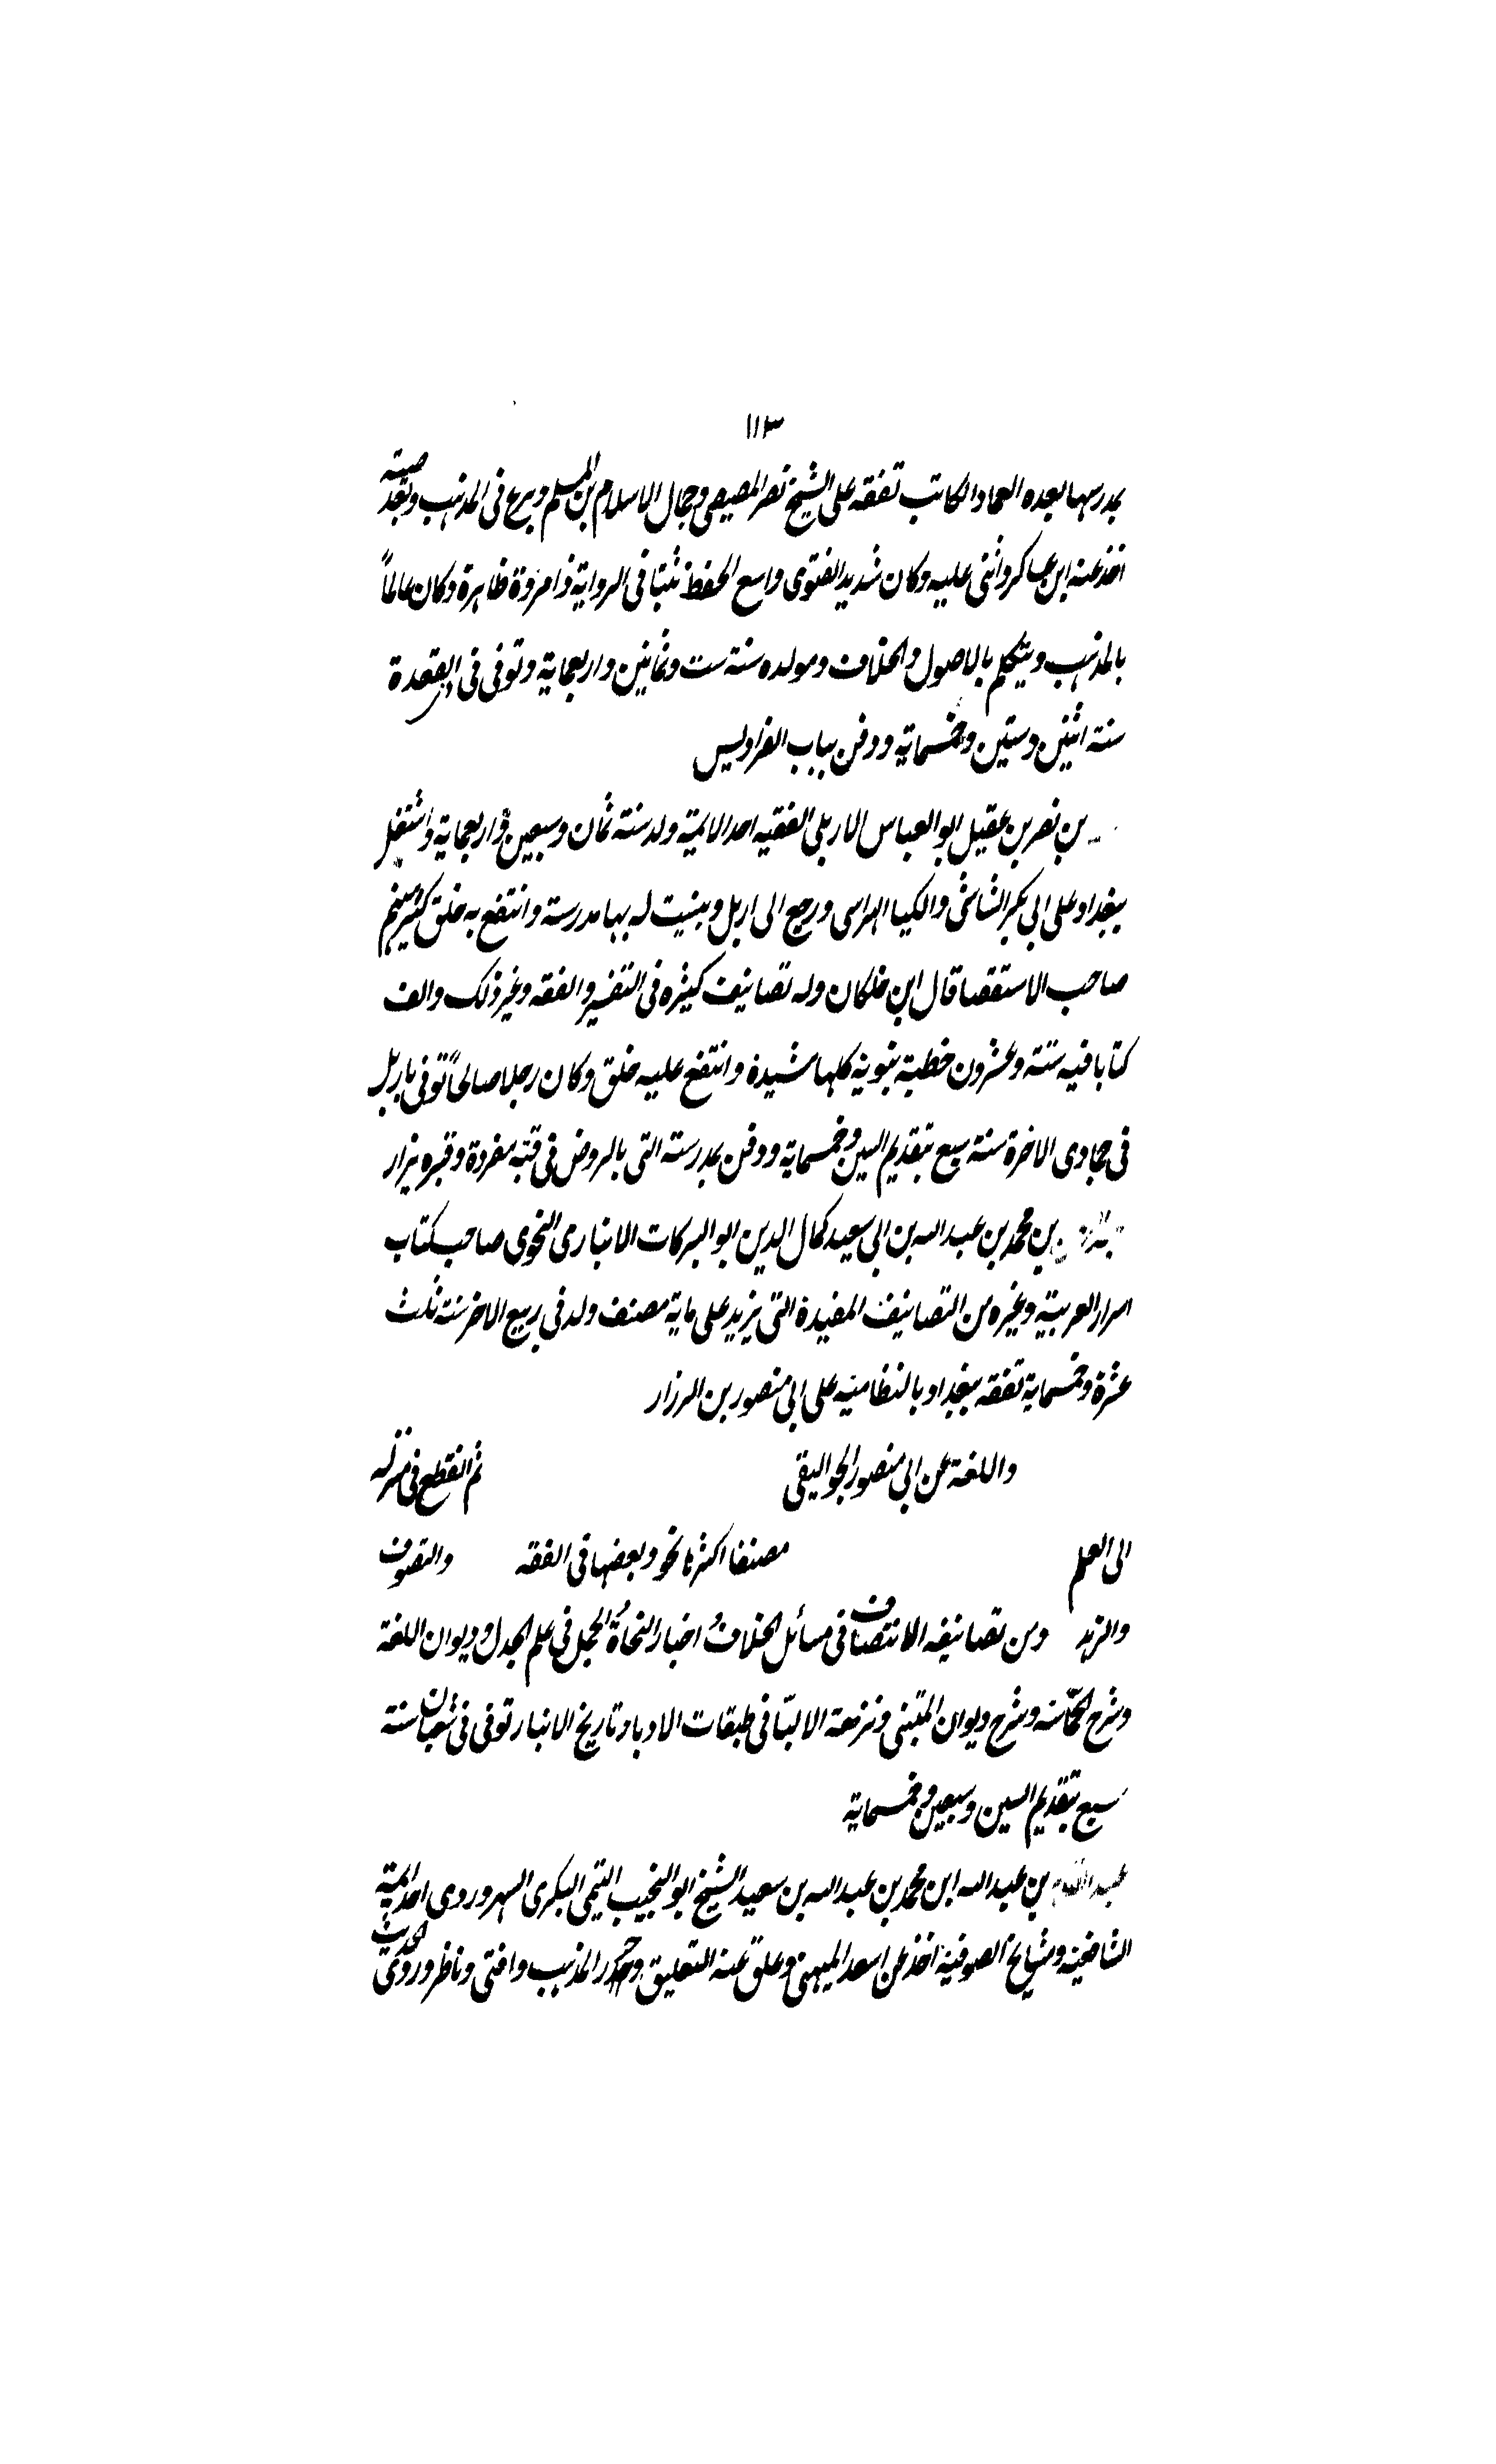 ١١٣
بمدرسها بعده العماد الكاتب تفقه على الشيخ نصر المصيصى وجمال الاسلام بن المسلم وبرع فى المذهب وبعد صيته
اخذ عنه ابن عساكر واثنى عليه وكان شديد الفتوى واسع الحفظ ثبتا فى الرواية ذا مروة ظاهرة وكان عالماً
بالمذهب ويتكلم بالاصول والخلاف ومولده سنة ست وثمانين واربعماية وتوفى فى ذى القعدة
سنة اثنين وستين وخمسماية ودفن بباب الفراديس
بن نصر بن عقيل ابو العباس الاربلى الفقيه احد الايمة ولد سنة ثمان وسبعين واربعماية واشتغل
ببغداد على ابى بكر الشاشى والكيا الهراسى ورجع الى اربل وبنيت له بها مدرسة وانتفع به خلق كثير منهم
صاحب الاستقصا قال ابن خلكان وله تصانيف كثيره فى التفسير والفقه وغير ذلك والف
كتابا فيه ستة وعشرون خطبة نبوية كلها مشيدة وانتفع عليه خلق وكان رجلا صالحاً توفى باربل
فى جمادى الاخرة سنة سبع بتقديم السين وخمسماية ودفن بمدرسته التى بالروض فى قبة مفردة وقبره يزار
بن محمد بن عبد الله بن ابى سعيد كمال الدين ابو البركات الانبارى النحوى صاحب كتاب
اسرار العربية وغيره من التصانيف المفيدة التى يزيد على ماية مصنف ولد فى ربيع الاخر سنة ثلث
عشرة وخمسماية تفقه ببغداد بالنظامية على ابى منصور بن الرزاز
واللغة عن ابى منصور الجواليقى ثم انقطع فى منزله
الى العلم مصنفا اكثرها نحو وبعضها فى الفقه والتصوف
والزهد ومن تصانيفه الانتصاف فى مسائل الخلاف و اخبار النحاة و الجمل فى علم الجدل و ديوان اللغة
وشرح الحماسة وشرح ديوان المتنبى ونزهة الالبّا فى طبقات الادبا وتاريخ الانبار توفى فى شعبان سنة
سبع بتقديم السين وسبعين وخمسماية
بن عبد الله ابن محمد بن عبد الله بن سعيد الشيخ ابو النجيب التيمى البكرى السهروردى احد ايمة
الشافعية ومشايخ الصوفية اخذ عن اسعد الميهنى وعلق عنه التعليق المذهب وافتى وناظر وروى الحديث